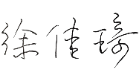 徐佳琦